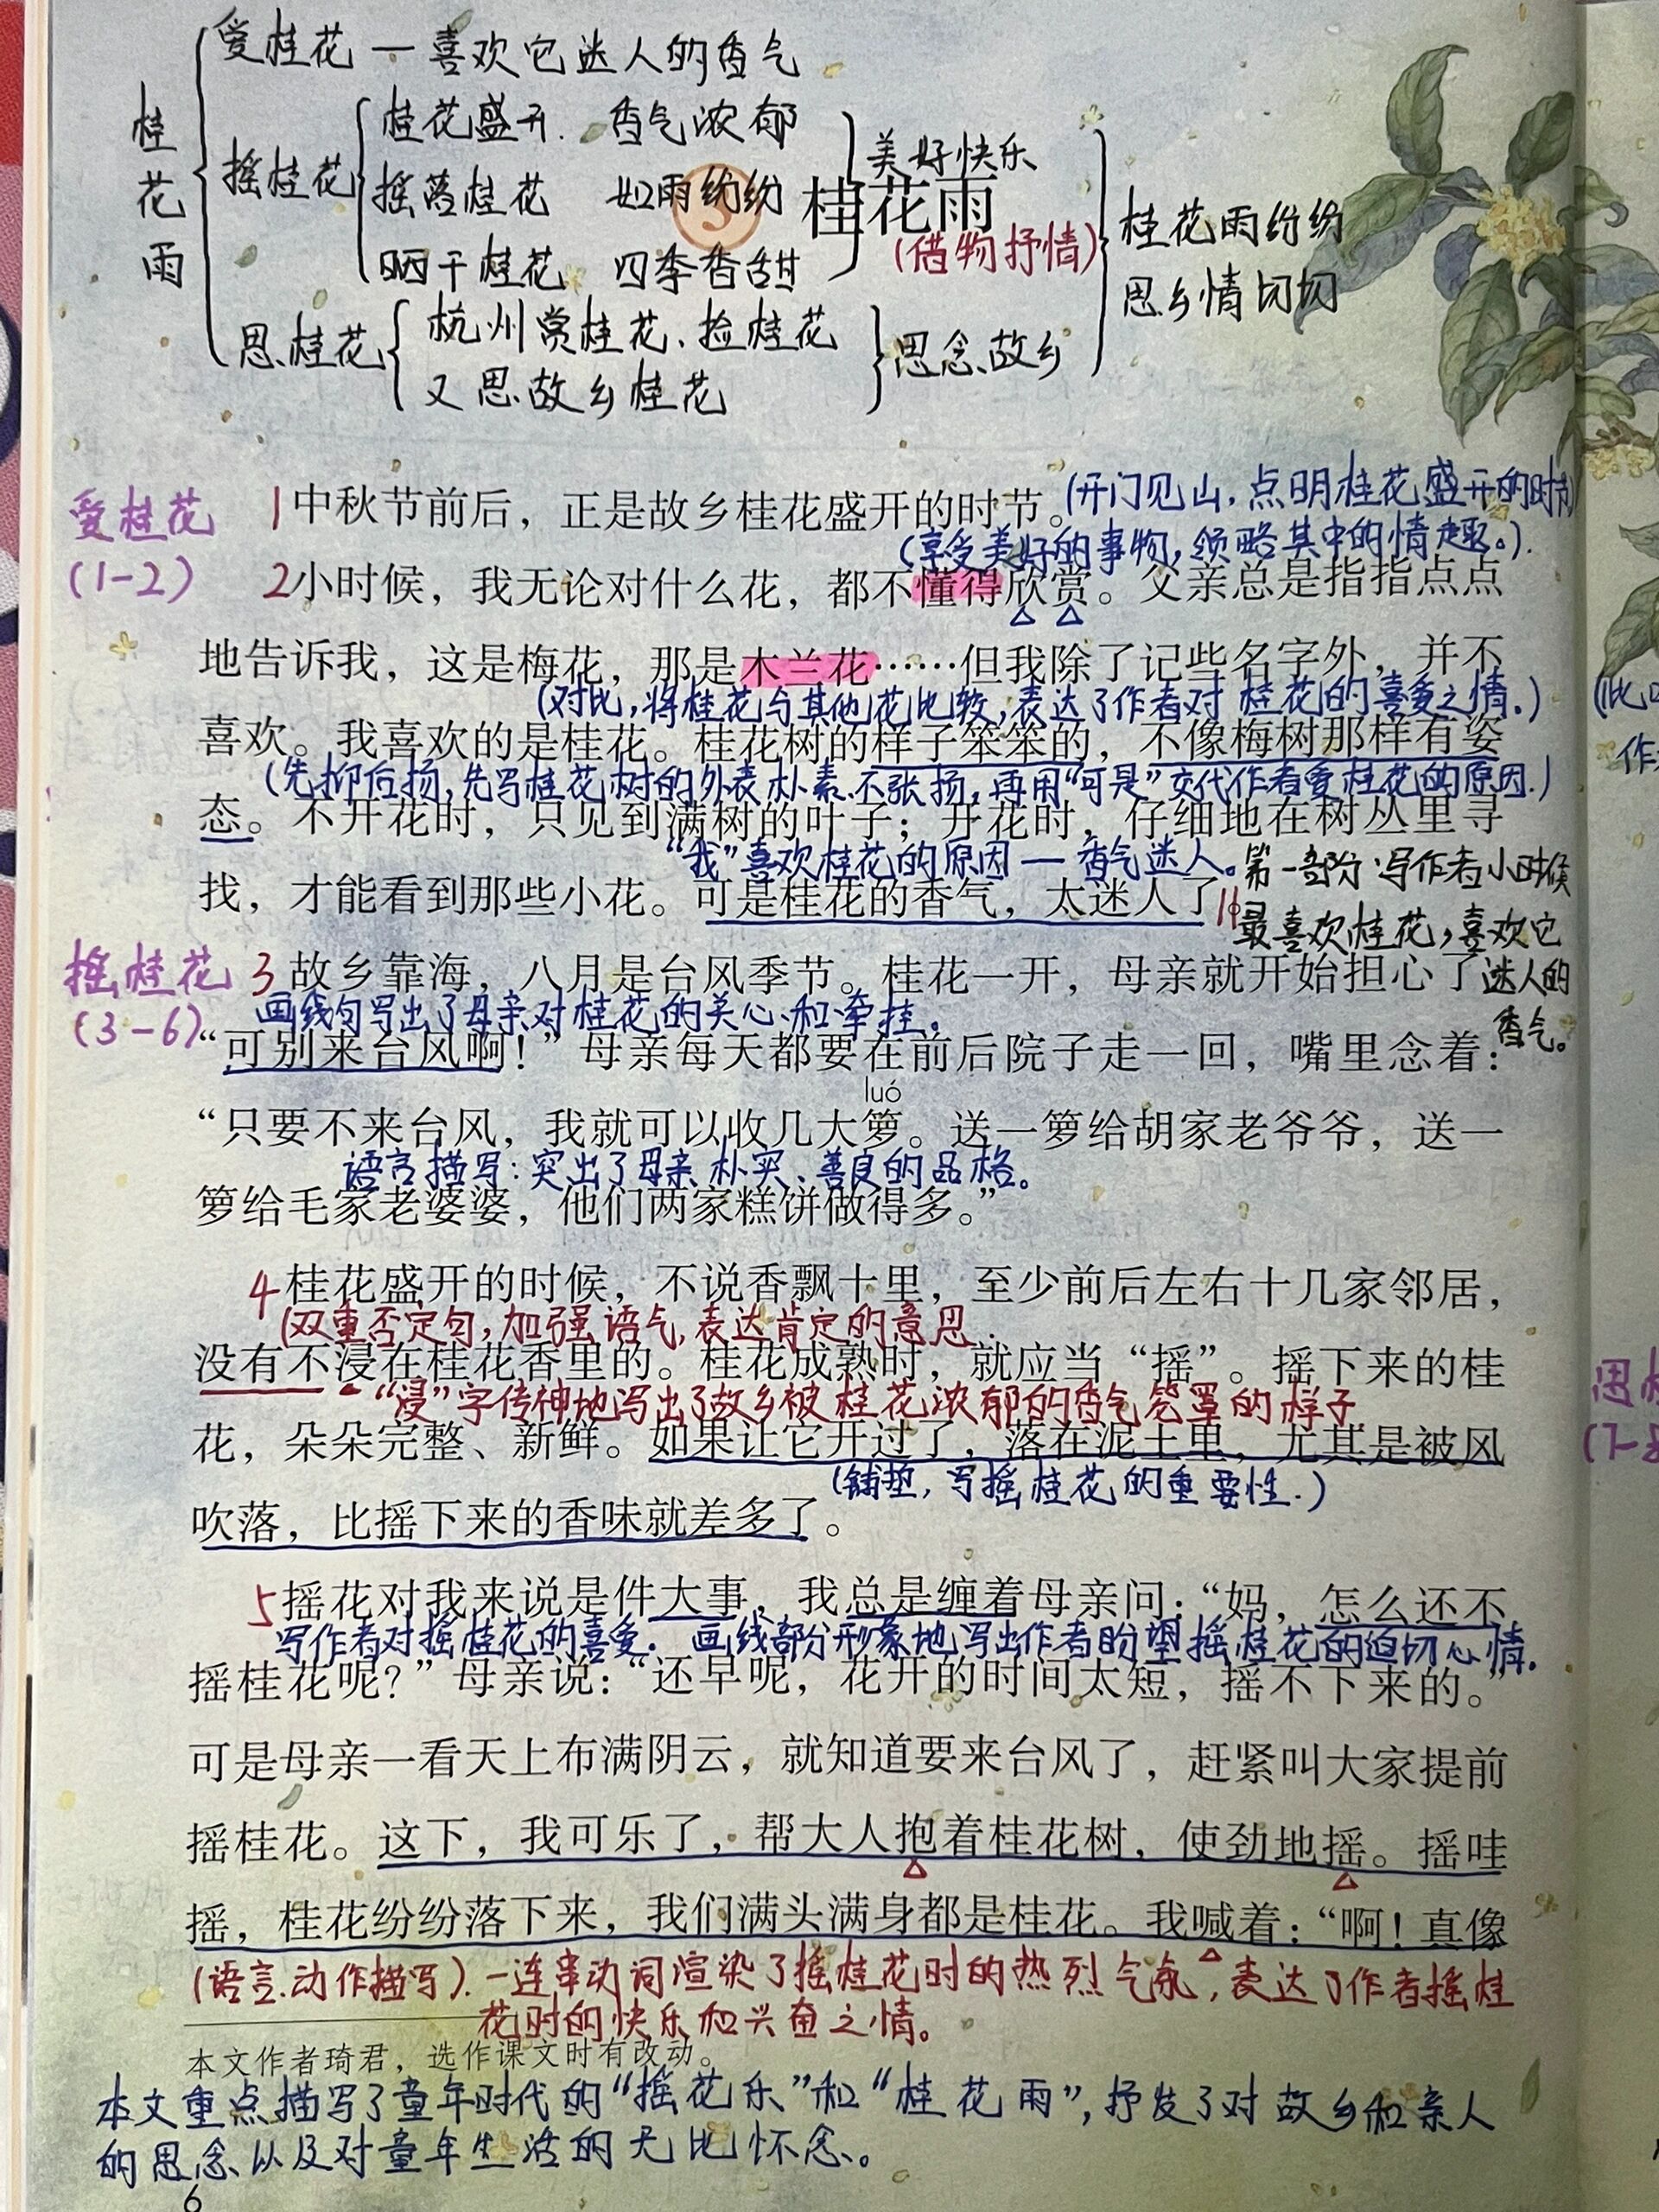 桂花雨
爱桂花 — 喜欢它迷人的香气
摇桂花
桂花盛开. 香气浓郁
摇落桂花 如雨纷纷
晒干桂花 四季香甜
美好快乐
3 桂花雨
(借物抒情)
思桂花
杭州赏桂花、捡桂花
又思故乡桂花
思念故乡
桂花雨纷纷
思乡情切切
爱桂花
(1-2)
(开门见山,点明桂花盛开的时节
1中秋节前后，正是故乡桂花盛开的时节。
(享受美好的事物,领略其中的情趣。).
2小时候，我无论对什么花，都不懂得欣赏。父亲总是指指点点
地告诉我，这是梅花，那是木兰花……但我除了记些名字外，并不
(对比,将桂花与其他花比较,表达了作者对桂花的喜爱之情.)
喜欢。我喜欢的是桂花。桂花树的样子笨笨的，不像梅树那样有姿
(先抑后扬,先写桂花树的外表朴素、不张扬,再用“可是”交代作者爱桂花的原因.)
态。不开花时，只见到满树的叶子；开花时，仔细地在树丛里寻
“我”喜欢桂花的原因 — 香气迷人。
找，才能看到那些小花。可是桂花的香气，太迷人了。
第一部分:写作者小时候
最喜欢桂花,喜欢它
迷人的
香气。
摇桂花
(3-6)
3 故乡靠海，八月是台风季节。桂花一开，母亲就开始担心了
画线句写出了母亲对桂花的关心和牵挂。
“可别来台风啊！”母亲每天都要在前后院子走一回，嘴里念着：
luó
“只要不来台风，我就可以收几大箩。送一箩给胡家老爷爷，送一
语言描写:突出了母亲朴实、善良的品格。
箩给毛家老婆婆，他们两家糕饼做得多。”
4桂花盛开的时候，不说香飘十里，至少前后左右十几家邻居，
(双重否定句,加强语气,表达肯定的意思.
没有不浸在桂花香里的。桂花成熟时，就应当“摇”。摇下来的桂
“浸”字传神地写出了故乡被桂花浓郁的香气笼罩的样子.
花，朵朵完整、新鲜。如果让它开过了，落在泥土里，尤其是被风
(铺垫,写摇桂花的重要性.)
吹落，比摇下来的香味就差多了。
5摇花对我来说是件大事，我总是缠着母亲问：“妈，怎么还不
写作者对摇桂花的喜爱. 画线部分形象地写出作者盼望摇桂花的迫切心情.
摇桂花呢？”母亲说：“还早呢，花开的时间太短，摇不下来的。”
可是母亲一看天上布满阴云，就知道要来台风了，赶紧叫大家提前
摇桂花。这下，我可乐了，帮大人抱着桂花树，使劲地摇。摇哇
摇，桂花纷纷落下来，我们满头满身都是桂花。我喊着：“啊！真像
(语言、动作描写).一连串动词渲染了摇桂花时的热烈气氛,表达了作者摇桂
花时的快乐和兴奋之情。
本文作者琦君，选作课文时有改动。
本文重点描写了童年时代的“摇花乐”和“桂花雨”,抒发了对故乡和亲人
的思念以及对童年生活的无比怀念。
6